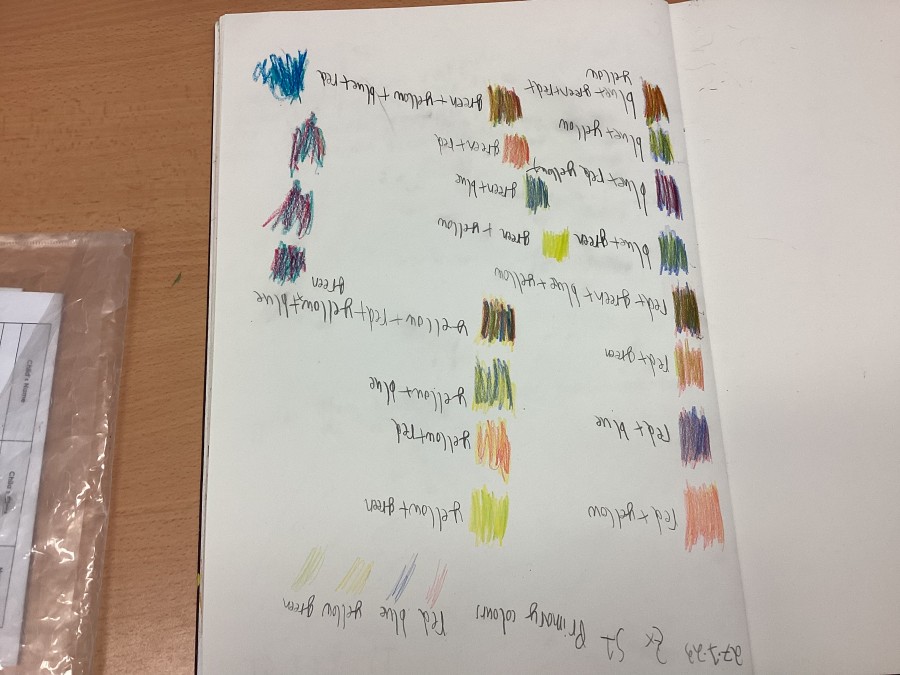 Primary colours red blue yellow green
red + yellow
red + blue
red + green
red + green + blue + yellow
blue + green
blue + red yellow +
blue + yellow
blue + green + red +
yellow
yellow + green
yellow + red
yellow + blue
yellow + red + yellow + blue
green
green + yellow
green + blue
green + red
green + yellow + blue + red
Child's Name